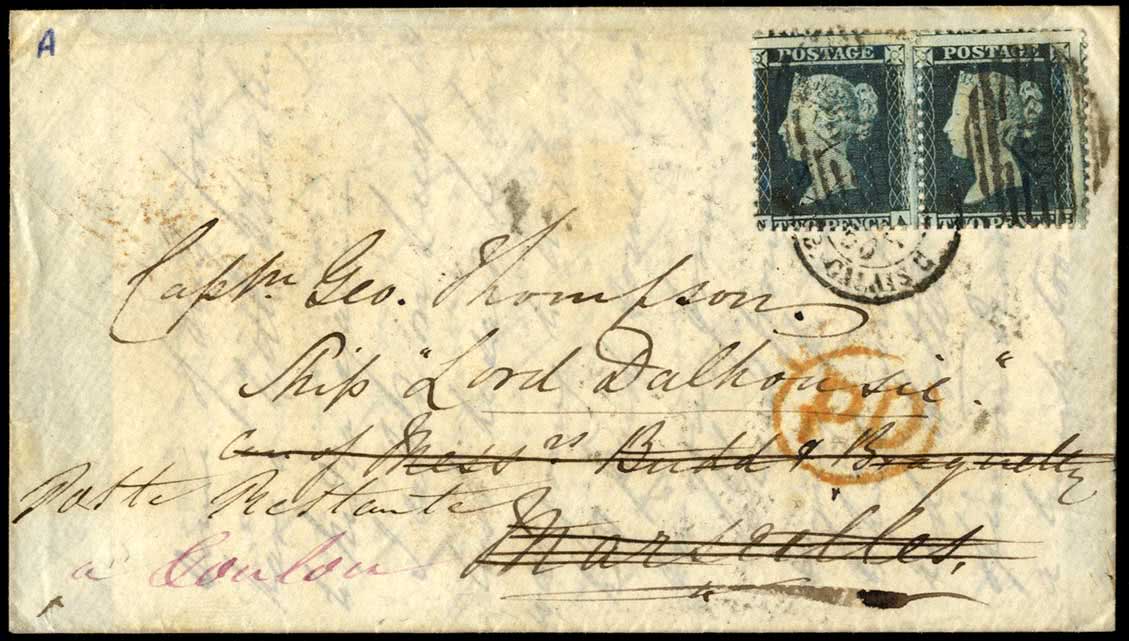 A
POSTAGE POSTAGE
TWO PENCE A TWO PENCE
Captn Geo. Thompson.
Ship "Lord Dalhousie"
PD
care of Messrs Budd & Braquetty
Poste Restante
Marseilles,
a Toulon